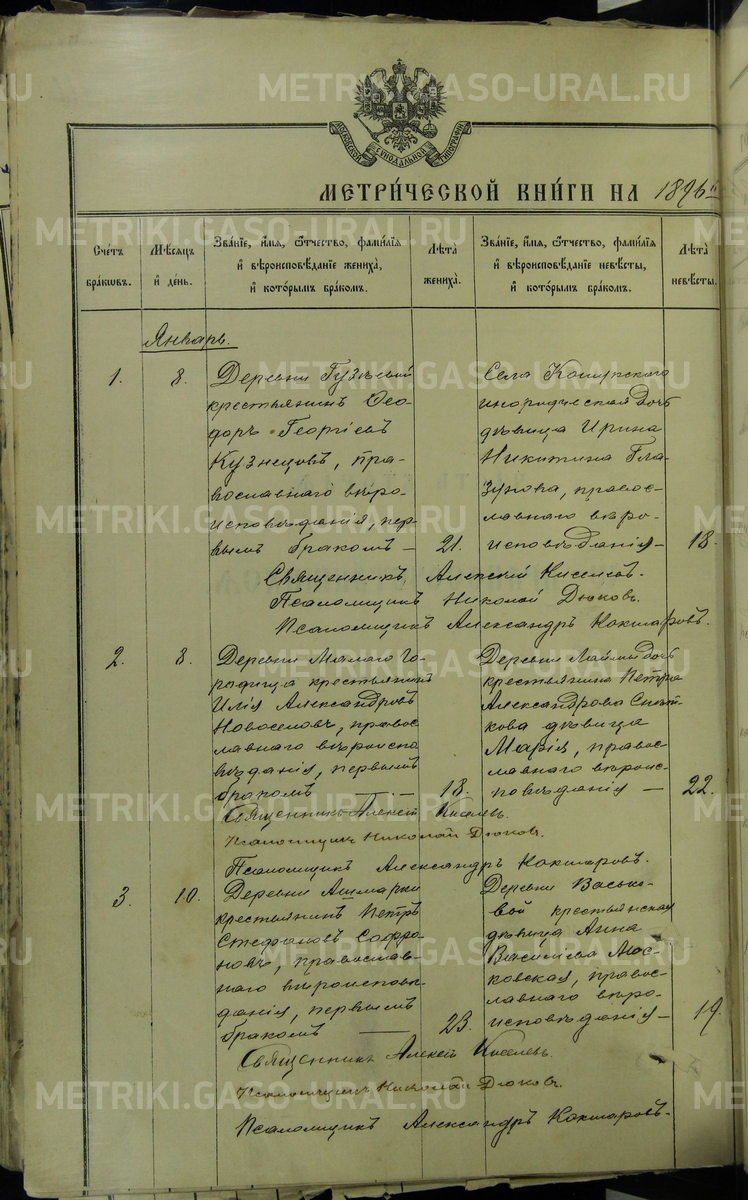 METRIKI.GASO-URAL.RU
МОСКОВСКОЙ СѴНОДАЛЬНОЙ ТИПОГРАФІИ
МЕТРИ́ЧЕСКОЙ КНИ́ГИ НА 1896
Сче́тъ бра́кѡвъ.
Мѣ́сяцъ и҆ де́нь.
Зва́нїе, и҆́мя, ѻ҆́тчество, фамѝлїя
и҆ вѣроисповѣ́данїе жениха̀,
и҆ кото́рымъ бра́комъ.
Лѣ́та жениха̀.
Зва́нїе, и҆́мя, ѻ҆́тчество, фамѝлїя
и҆ вѣроисповѣ́данїе невѣ́сты,
и҆ кото́рымъ бра́комъ.
Лѣ́та невѣ́сты.
Январь.
1.
8.
Деревни Гузѣевой
крестьянинъ Ѳео-
доръ Георгіевъ
Кузнецовъ, пра-
вославнаго вѣро-
исповѣданія, пер-
вымъ бракомъ —
21.
Села
дочь
дѣвица Ирина
Никитина Гла-
зунова, правос-
лавнаго вѣро-
исповѣданія —
18.
Священникъ Алексій Киселевъ.
Псаломщикъ Николай Дюковъ.
Псаломщикъ Александръ Кокшаровъ.
2.
8.
Деревни Малаго Го-
родища крестьянинъ
Илія Александровъ
Новоселовъ, правос-
лавнаго вѣроиспо
вѣданія, первымъ
бракомъ —
18.
Деревни дочь
крестьянина Петра
Александрова
кова дѣвица
Марія, правос-
лавнаго вѣроис-
повѣданія —
22.
Священникъ Алексій Киселевъ.
Псаломщикъ Николай Дюковъ.
Псаломщикъ Александръ Кокшаровъ.
3.
10.
Деревни Ашмарки
крестьянинъ Петръ
Стефановъ Софро-
новъ, православ-
наго вѣроисповѣ-
данія, первымъ
бракомъ —
23.
Деревни Васьки-
вой крестьянская
дѣвица Анна
Васильева Мос-
ковская, правос-
лавнаго вѣро-
исповѣданія —
19.
Священникъ Алексій Киселевъ.
Псаломщикъ Николай Дюковъ.
Псаломщикъ Александръ Кокшаровъ.